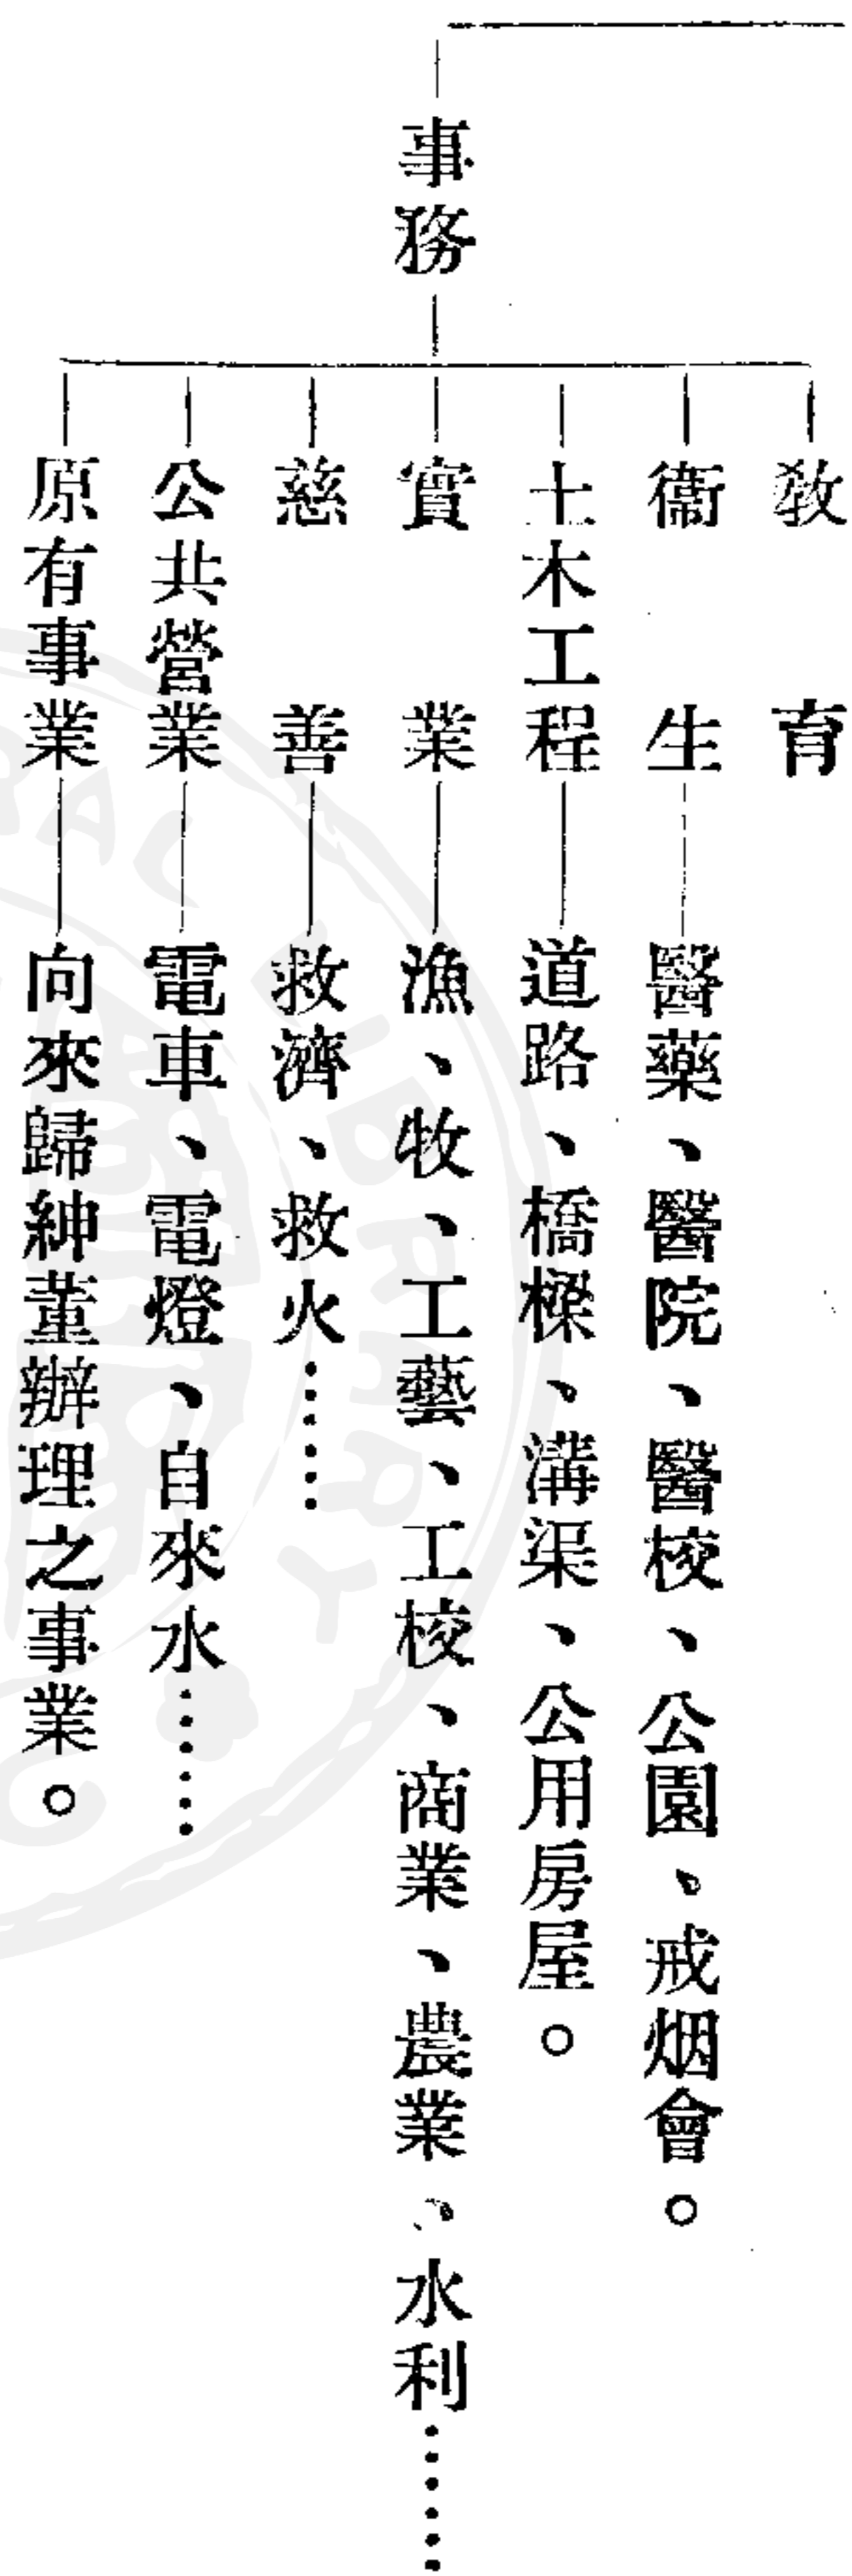 事務
教育
衞生——醫藥、醫院、醫校、公園、戒烟會。
土木工程——道路、橋樑、溝渠、公用房屋。
實業——漁、牧、工藝、工校、商業、農業、水利……
慈善——救濟、救火……
公共營業——電車、電燈、自來水……
原有事業——向來歸紳董辦理之事業。